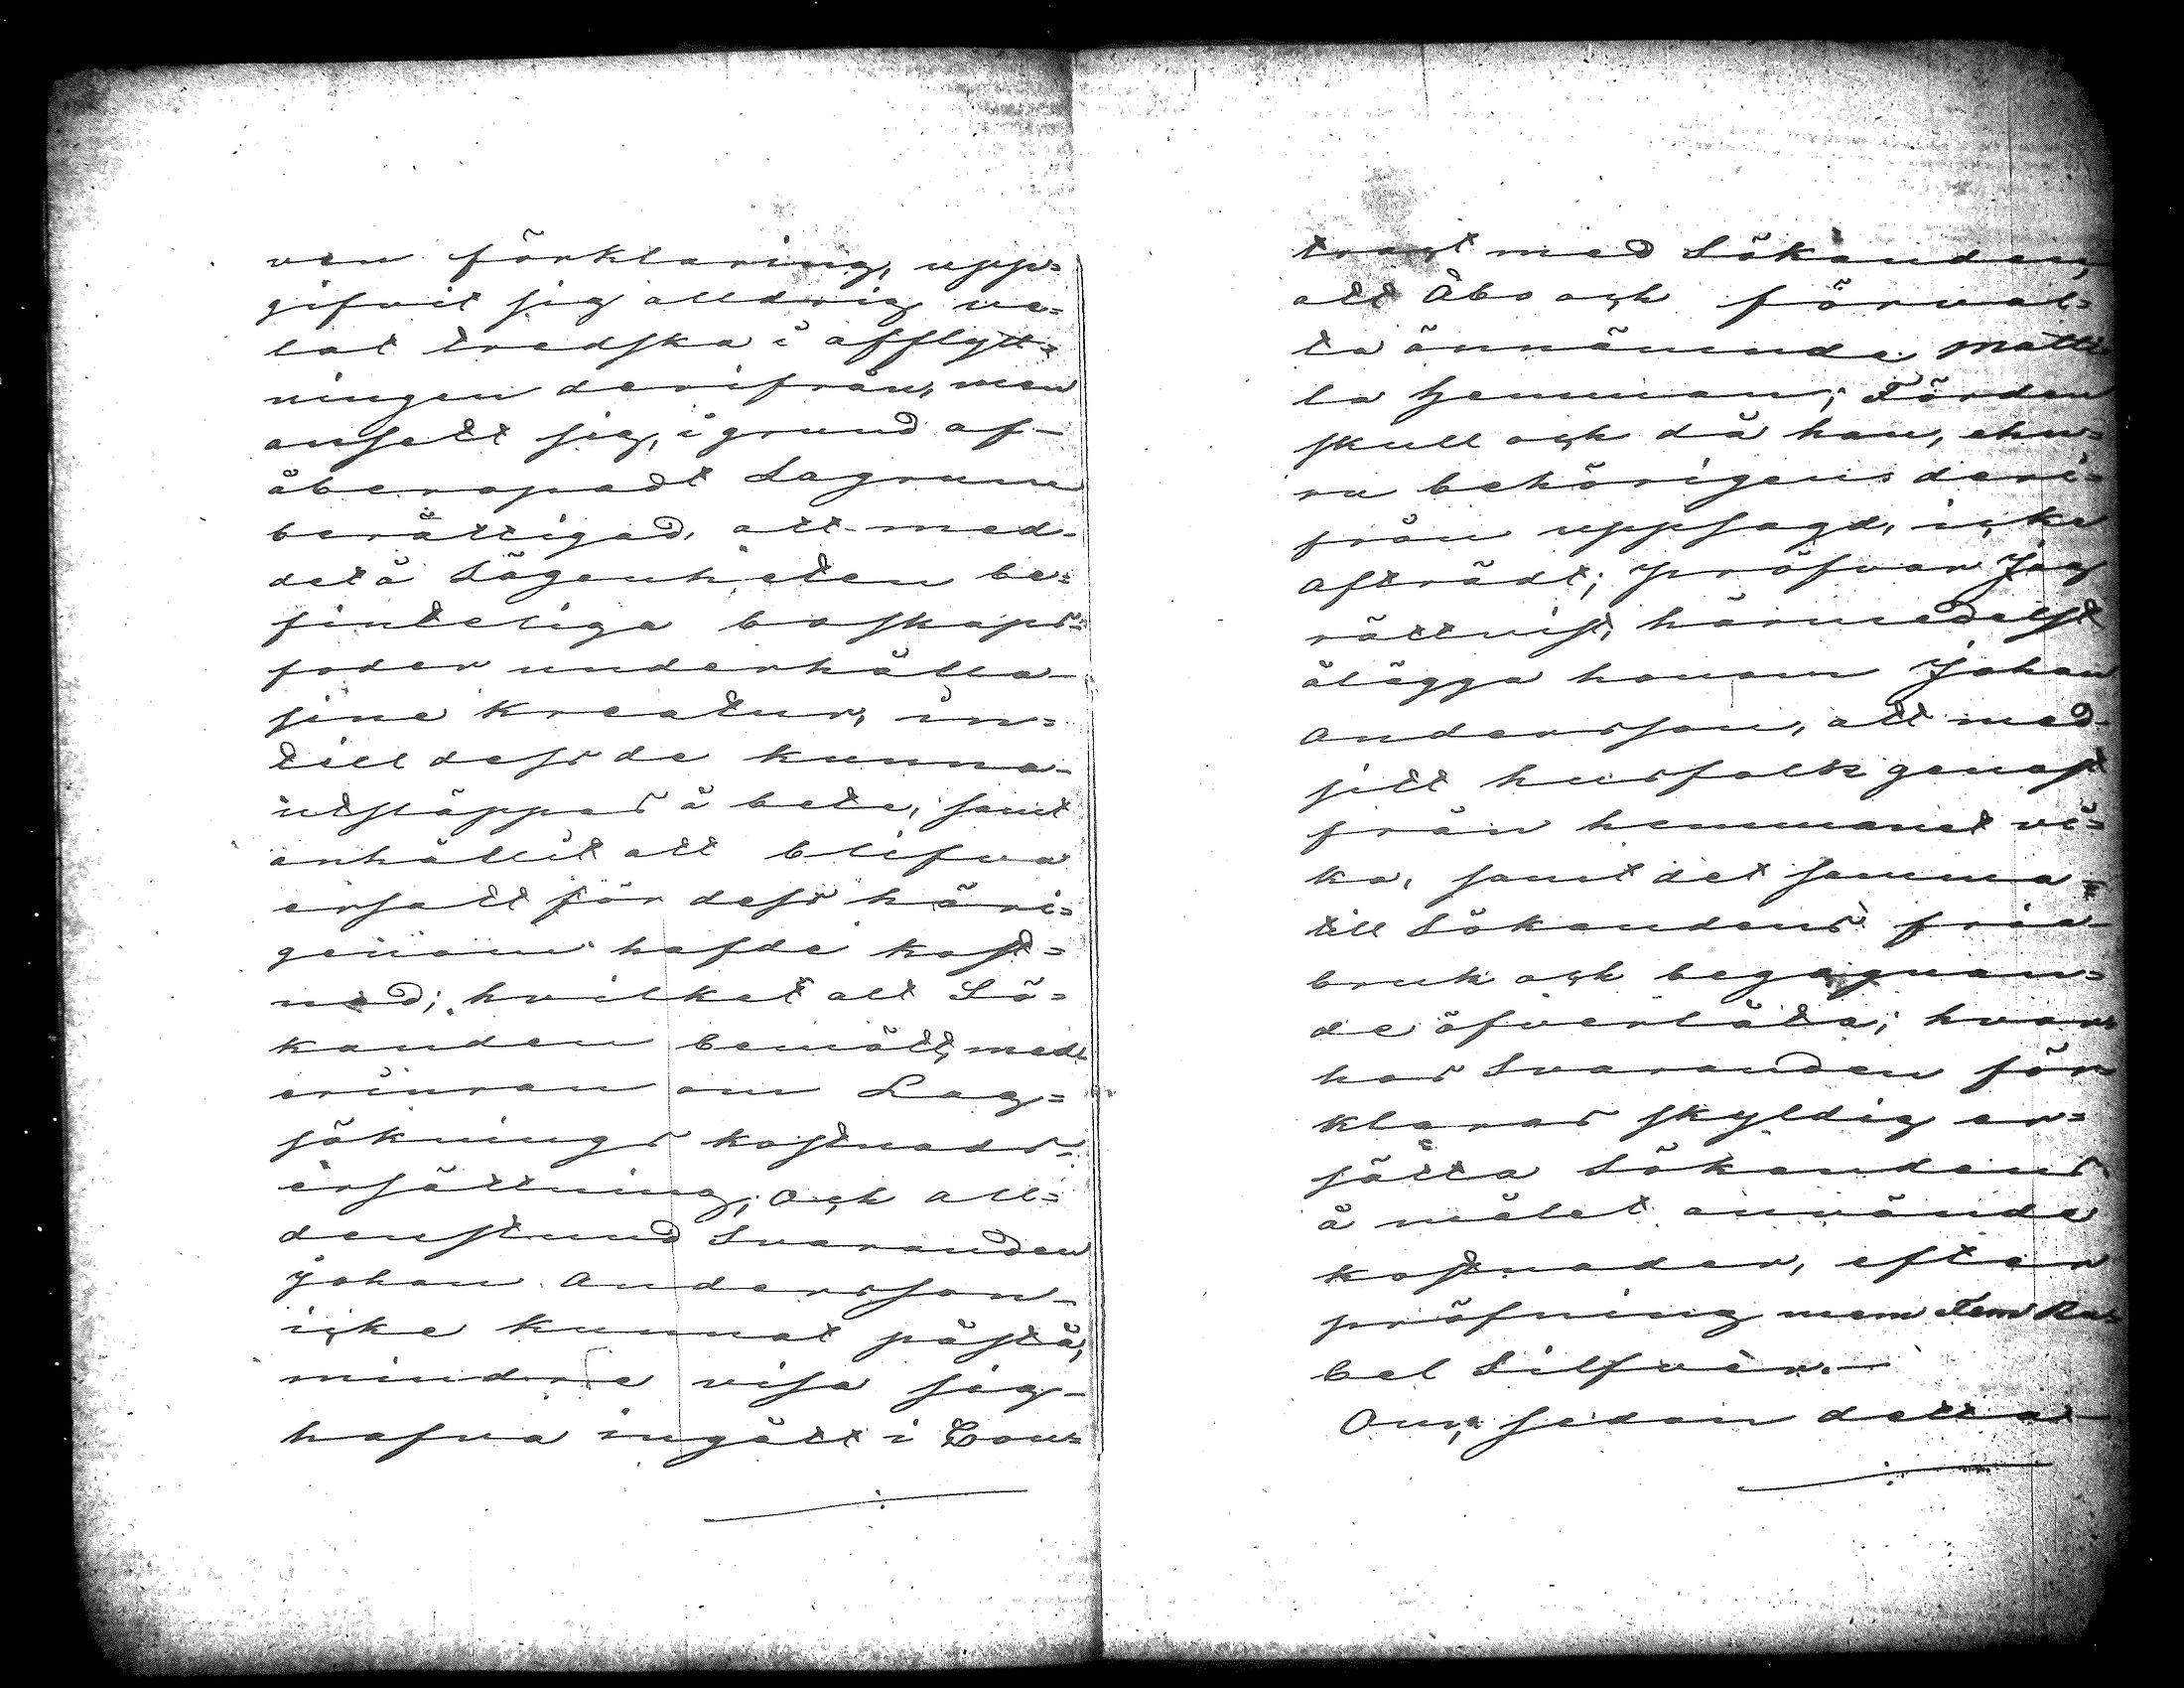 ven förklaring, upp=
gifvit sig alldrig ve=
lat tredska i afflytt=
ningen derifrån, men
ansett sig, i grund af
åberopadt Lagrum
berättigad, att med
det å Lägenheten be=
finteliga boskaps=
foder underhålla
sine kreatur, in=
till dess de kunna
utsläppas å bete, samt
anhållit att blifva
ersatt för dess häri=
genom hafde kost=
nad; hvilket alt Sö=
kanden bemött, med
erinran om Lag=
söknings kostnads
ersättning; Och all=
denstund Svaranden
Johan Andersson
icke kunnat påstå,
mindre visa sig
hafva ingått i Con=
tract med Sökanden,
att Åbo och förval=
ta ännämnde Matti
la Hemman; Fördens
skull och då han, ehu=
ru behörigen deri=
från uppsagd, icke
afträdt; pröfvar Jag
rättvist, härmedelst
ålägga honom Johan
Andersson, att med
sitt husfolk genast
från hemmanet vi=
ka, samt det samma
till Sökandens fria
bruk och begagnan=
de öfverlåta; hvar
hos Svaranden för
klaras skyldig er=
sätta Sökandens
å målet använde
kostnader, efter
pröfning mem Fem Ru=
bel Silfver.
Om, sedan detta